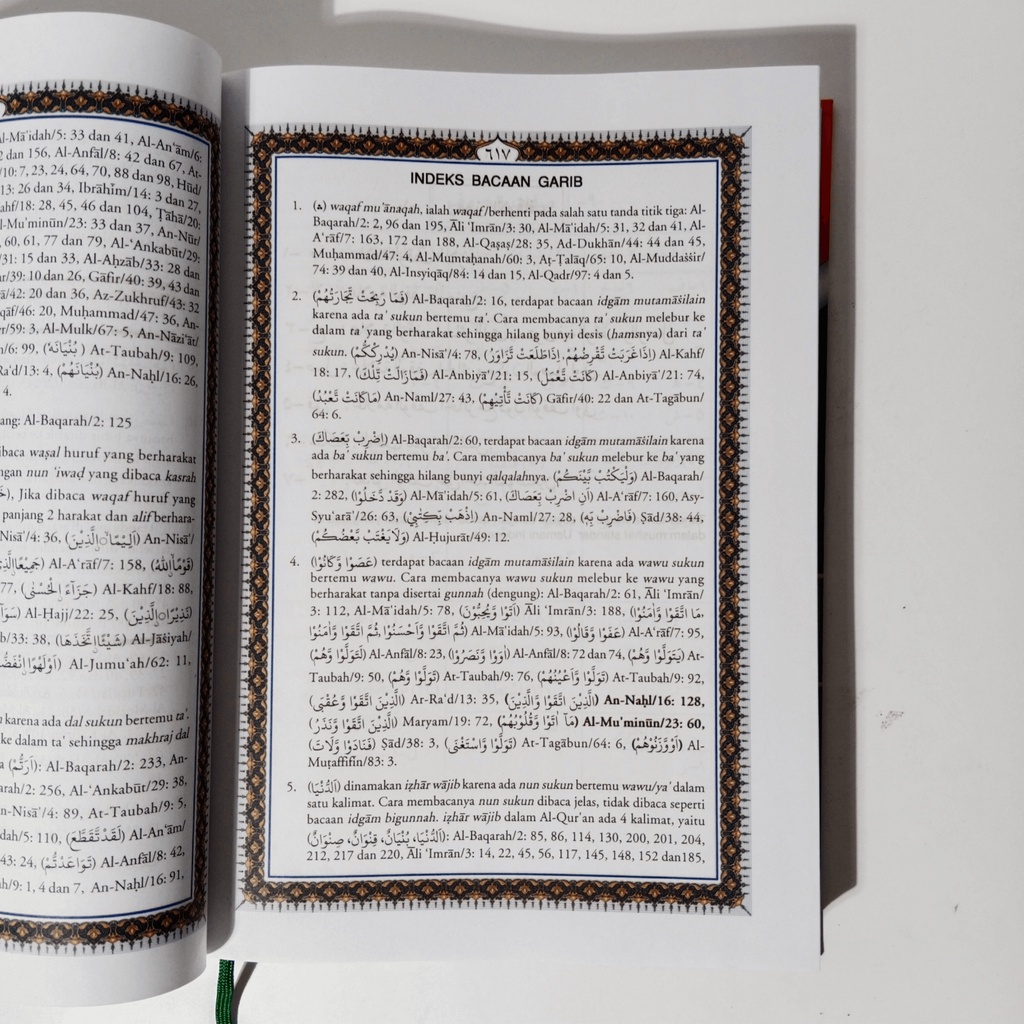 l-Mā'idah/5: 33 dan 41, Al-An'ām/6:
2 dan 156, Al-Anfāl/8: 42 dan 67, At-
/10: 7, 23, 24, 64, 70, 88 dan 98, Hūd/
13: 26 dan 34, Ibrāhīm/14: 3 dan 27,
ahf/18: 28, 45, 46 dan 104, Ṭāhā/20:
l-Mu'minūn/23: 33 dan 37, An-Nūr/
, 60, 61, 77 dan 79, Al-'Ankabūt/29:
/31: 15 dan 33, Al-Aḥzāb/33: 28 dan
r/39: 10 dan 26, Gāfir/40: 39, 43 dan
ā/42: 20 dan 36, Az-Zukhruf/43: 32
qāf/46: 20, Muḥammad/47: 36, An-
r/59: 3, Al-Mulk/67: 5, An-Nāzi'āt/
n/6: 99, (بُنْيَانَهٗ) At-Taubah/9: 109,
Ra'd/13: 4, (بُنْيَانَهُمْ) An-Naḥl/16: 26,
4.
ang: Al-Baqarah/2: 125
ibaca waṣal huruf yang berharakat
ngan nun 'iwaḍ yang dibaca kasrah
Jika dibaca waqaf huruf yang
panjang 2 harakat dan alif berhara-
Nisā'/4: 36, (اَلِيْمًاۨالَّذِيْنَ) An-Nisā'/
(قَوْمًاۨاللّٰهُ) Al-A'rāf/7: 158, (جَمِيْعًاۨالَّذِيْ
77, (جَزَاۤءًۨالْحُسْنٰى) Al-Kahf/18: 88,
(نَذِيْرًاۨالَّذِيْنَ) Al-Ḥajj/22: 25,
b/33: 38, (شَيْـًٔاۨاتَّخَذَهَا) Al-Jāṡiyah/
(اَوْلَهْوًاۨانْفَضُّ Al-Jumu'ah/62: 11,
karena ada dal sukun bertemu ta'.
ke dalam ta' sehingga makhraj dal
a : Al-Baqarah/2: 233, An-
arah/2: 256, Al-'Ankabūt/29: 38,
n-Nisā'/4: 89, At-Taubah/9: 5,
dah/5: 110, (لَقَدْتَّقَطَّعَ) Al-An'ām/
43: 24, (تَوَاعَدْتُّمْ) Al-Anfāl/8: 42,
h/9: 1, 4 dan 7, An-Naḥl/16: 91,
٦١٧
INDEKS BACAAN GARIB
1. (ۛ) waqaf mu'ānaqah, ialah waqaf/berhenti pada salah satu tanda titik tiga: Al-
Baqarah/2: 2, 96 dan 195, Āli 'Imrān/3: 30, Al-Mā'idah/5: 31, 32 dan 41, Al-
A'rāf/7: 163, 172 dan 188, Al-Qaṣaṣ/28: 35, Ad-Dukhān/44: 44 dan 45,
Muḥammad/47: 4, Al-Mumtaḥanah/60: 3, Aṭ-Ṭalāq/65: 10, Al-Muddaṡṡir/
74: 39 dan 40, Al-Insyiqāq/84: 14 dan 15, Al-Qadr/97: 4 dan 5.
2. (فَمَا رَبِحَتْ تِّجَارَتُهُمْ) Al-Baqarah/2: 16, terdapat bacaan idgām mutamāṡilain
karena ada ta' sukun bertemu ta'. Cara membacanya ta' sukun melebur ke
dalam ta' yang berharakat sehingga hilang bunyi desis (hamsnya) dari ta'
sukun. (يُدْرِكْكُّمُ) An-Nisā'/4: 78, (اِذَاغَرَبَتْ تَّقْرِضُهُمْ، اِذَاطَلَعَتْ تَّزَاوَرُ) Al-Kahf/
18: 17, (فَمَازَالَتْ تِّلْكَ) Al-Anbiyā'/21: 15, (كَانَتْ تَّعْمَلُ) Al-Anbiyā'/21: 74,
(مَاكَانَتْ تَّعْبُدُ) An-Naml/27: 43, (كَانَتْ تَّأْتِيْهِمْ) Gāfir/40: 22 dan At-Tagābun/
64: 6.
3. (اِضْرِبْ بِّعَصَاكَ) Al-Baqarah/2: 60, terdapat bacaan idgām mutamāṡilain karena
ada ba' sukun bertemu ba'. Cara membacanya ba' sukun melebur ke ba' yang
berharakat sehingga hilang bunyi qalqalahnya. (وَلْيَكْتُبْ بَّيْنَكُمْ) Al-Baqarah/
2: 282, (وَقَدْ دَّخَلُوْا) Al-Mā'idah/5: 61, (اَنِ اضْرِبْ بِّعَصَاكَ) Al-A'rāf/7: 160, Asy-
Syu'arā'/26: 63, (اِذْهَبْ بِّكِتٰبِيْ) An-Naml/27: 28, (فَاضْرِبْ بِّهٖ) Ṣād/38: 44,
(وَلَايَغْتَبْ بَّعْضُكُمْ) Al-Ḥujurāt/49: 12.
4. (عَصَوْا وَّكَانُوْا) terdapat bacaan idgām mutamāṡilain karena ada wawu sukun
bertemu wawu. Cara membacanya wawu sukun melebur ke wawu yang
berharakat tanpa disertai gunnah (dengung): Al-Baqarah/2: 61, Āli 'Imrān/
3: 112, Al-Mā'idah/5: 78, (اَتَوْا وَّيُحِبُّوْنَ) Āli 'Imrān/3: 188, (مَا اتَّقَوْا وَّاٰمَنُوْا،
ثُمَّ اتَّقَوْا وَّاَحْسَنُوْا، ثُمَّ اتَّقَوْا وَّاٰمَنُوْا) Al-Mā'idah/5: 93, (عَفَوْا وَّقَالُوْا) Al-A'rāf/7: 95,
(لَتَوَلَّوْا وَّهُمْ) Al-Anfāl/8: 23, (اٰوَوْا وَّنَصَرُوْا) Al-Anfāl/8: 72 dan 74, (يَتَوَلَّوْا وَّهُمْ) At-
Taubah/9: 50, (تَوَلَّوْا وَّهُمْ) At-Taubah/9: 76, (تَوَلَّوْا وَّاَعْيُنُهُمْ) At-Taubah/9: 92,
(الَّذِيْنَ اتَّقَوْا وَّعُقْبَى) Ar-Ra'd/13: 35, (الَّذِيْنَ اتَّقَوْا وَّالَّذِيْنَ) An-Naḥl/16: 128,
(الَّذِيْنَ اتَّقَوْا وَّنَذَرُ) Maryam/19: 72, (مَآ اٰتَوْا وَّقُلُوْبُهُمْ) Al-Mu'minūn/23: 60,
(فَنَادَوْا وَّلَاتَ) Ṣād/38: 3, (تَوَلَّوْا وَّاسْتَغْنَى) At-Tagābun/64: 6, (اَوْوَّزَنُوْهُمْ) Al-
Muṭaffifīn/83: 3.
5. (اَلدُّنْيَا) dinamakan iẓhār wājib karena ada nun sukun bertemu wawu/ya' dalam
satu kalimat. Cara membacanya nun sukun dibaca jelas, tidak dibaca seperti
bacaan idgām bigunnah. iẓhār wājib dalam Al-Qur'an ada 4 kalimat, yaitu
(اَلدُّنْيَا، بُنْيَانٌ، قِنْوَانٌ، صِنْوَانٌ): Al-Baqarah/2: 85, 86, 114, 130, 200, 201, 204,
212, 217 dan 220, Āli 'Imrān/3: 14, 22, 45, 56, 117, 145, 148, 152 dan185,